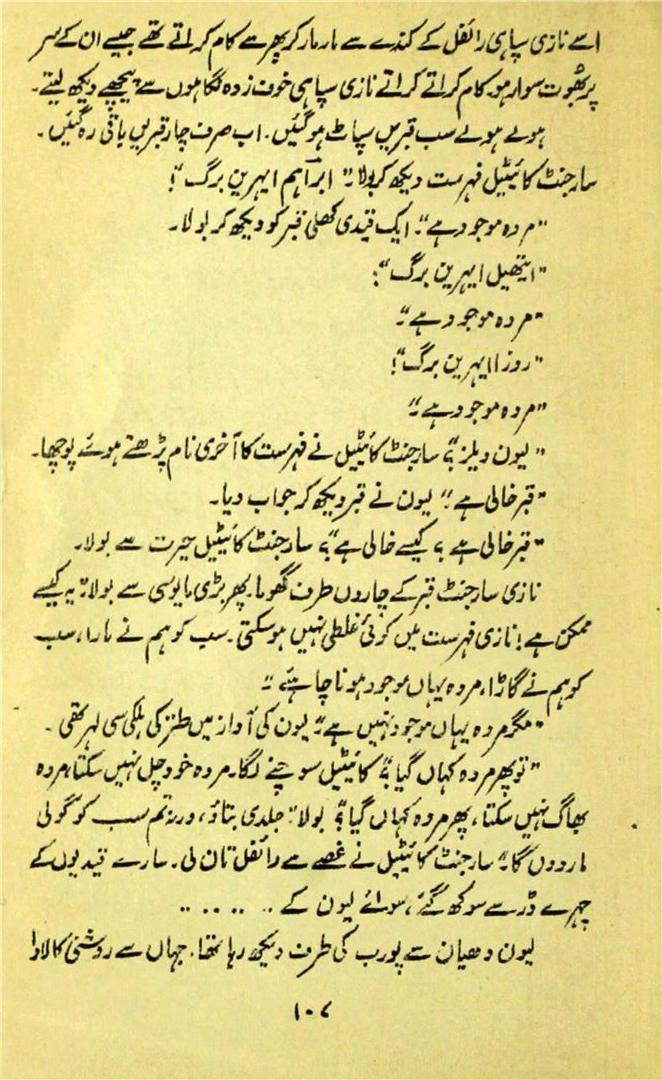 اسے نازی سپاہی رائفل کے کندے سے مار مار کر پھر سے کام کراتے تھے جیسے ان کے سر
پر بھوت سوار ہو کام کراتے کراتے نازی سپاہی خوف زدہ نگاہوں سے پیچھے دیکھ لیتے۔
ہوتے ہوتے سب قبریں سپاٹ ہو گئیں۔ اب صرف چار قبریں باقی رہ گئیں۔
سارجنٹ کائیٹیل فہرست دیکھ کر بولا "ابراہم ایہرین برگ"!
"مردہ موجود ہے"۔ ایک قیدی کھلی قبر کو دیکھ کر بولا۔
"ایتھیل ایہرین برگ"؟
"مردہ موجود ہے"۔
"روزا ایہرین برگ"!
"مردہ موجود ہے"۔
"لیون ویلز"؟ سارجنٹ کائیٹیل نے فہرست کا آخری نام پڑھتے ہوئے پوچھا۔
"قبر خالی ہے"۔ لیون نے قبر دیکھ کر جواب دیا۔
"قبر خالی ہے؟ کیسے خالی ہے"؟ سارجنٹ کائیٹیل حیرت سے بولا۔
نازی سارجنٹ قبر کے چاروں طرف گھوما۔ پھر بڑی مایوسی سے بولا "یہ کیسے
ممکن ہے! نازی فہرست میں کوئی غلطی نہیں ہو سکتی۔ سب کو ہم نے مارا، سب
کو ہم نے گاڑا، مردہ یہاں موجود ہونا چاہئے"۔
"مگر مردہ یہاں موجود نہیں ہے"۔ لیون کی آواز میں طنز کی ہلکی سی لہر تھی۔
"تو پھر مردہ کہاں گیا"؟ کائیٹیل سوچنے لگا۔ مردہ خود چل نہیں سکتا، مردہ
بھاگ نہیں سکتا، پھر مردہ کہاں گیا؟ بولا "جلدی بتاؤ، ورنہ تم سب کو گولی
مار دوں گا"۔ سارجنٹ کائیٹیل نے غصے سے رائفل تان لی۔ سارے قیدیوں کے
چہرے ڈر سے سوکھ گئے، سوائے لیون کے .......
لیون دھیان سے پورب کی طرف دیکھ رہا تھا۔ جہاں سے روشنی کا لاوا
۱۰۷